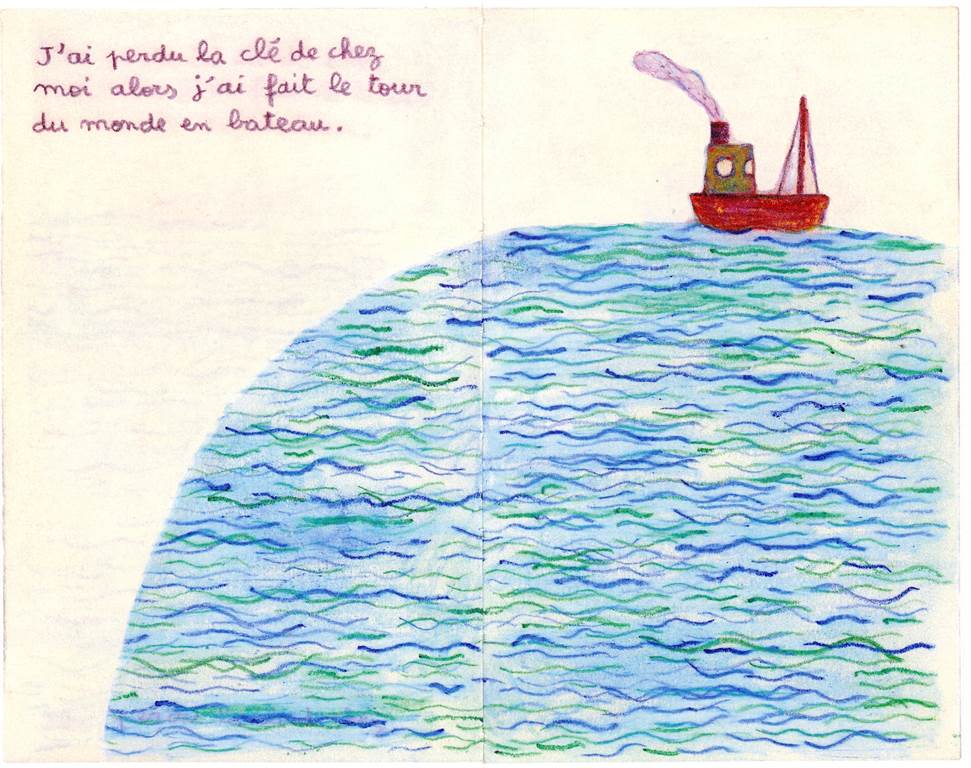 J'ai perdu la clé de chez
moi alors j'ai fait le tour
du monde en bateau.